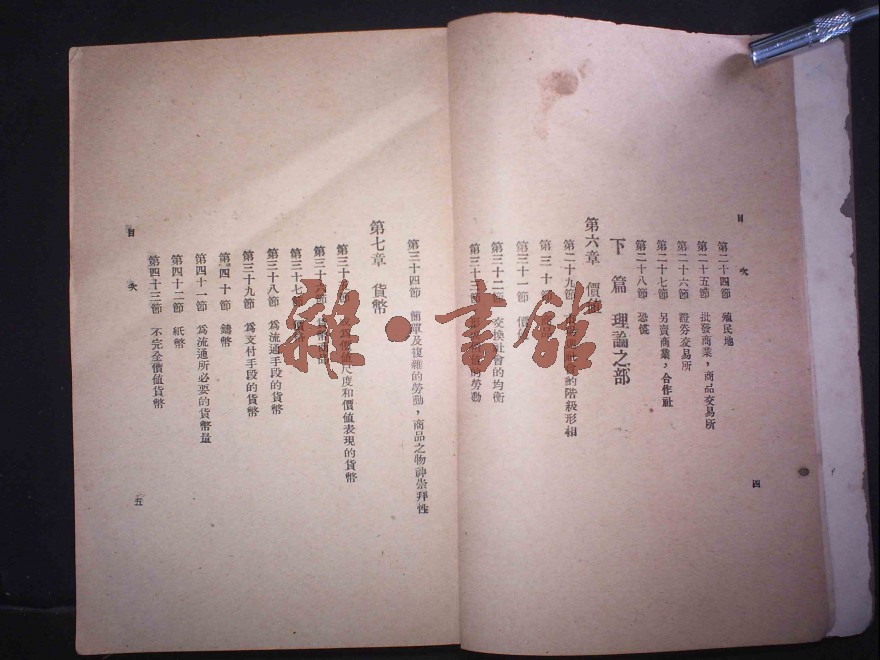 目次
第二十四節 殖民地
第二十五節 批發商業，商品交易所
第二十六節 證券交易所
第二十七節 另賣商業，合作社
第二十八節 恐慌
下篇 理論之部
第六章 價值
第二十九節 的階級形相
第三十
第三十一節 價
第三十二節 交換社會的均衡
第三十三節 的勞動
四
第三十四節 簡單及複雜的勞動，商品之物神崇拜性
第七章 貨幣
第三十 價值尺度和價值表現的貨幣
第三十六節
第三十七節 價
第三十八節 為流通手段的貨幣
第三十九節 為支付手段的貨幣
第四十節 鑄幣
第四十一節 為流通所必要的貨幣量
第四十二節 紙幣
第四十三節 不完全價值貨幣
目次
五
雜·書館